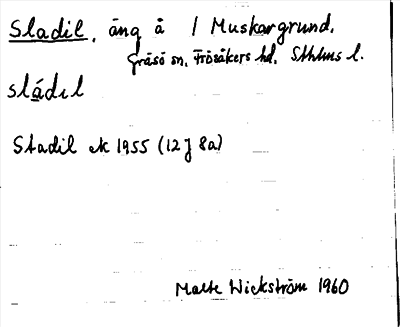 Sladil, äng å / Muskargrund,
Gräsö sn, Frösåkers hd, Sthlms l.
sládıl
Stadil ek 1955 (12J 8a)
Malte Wickström 1960